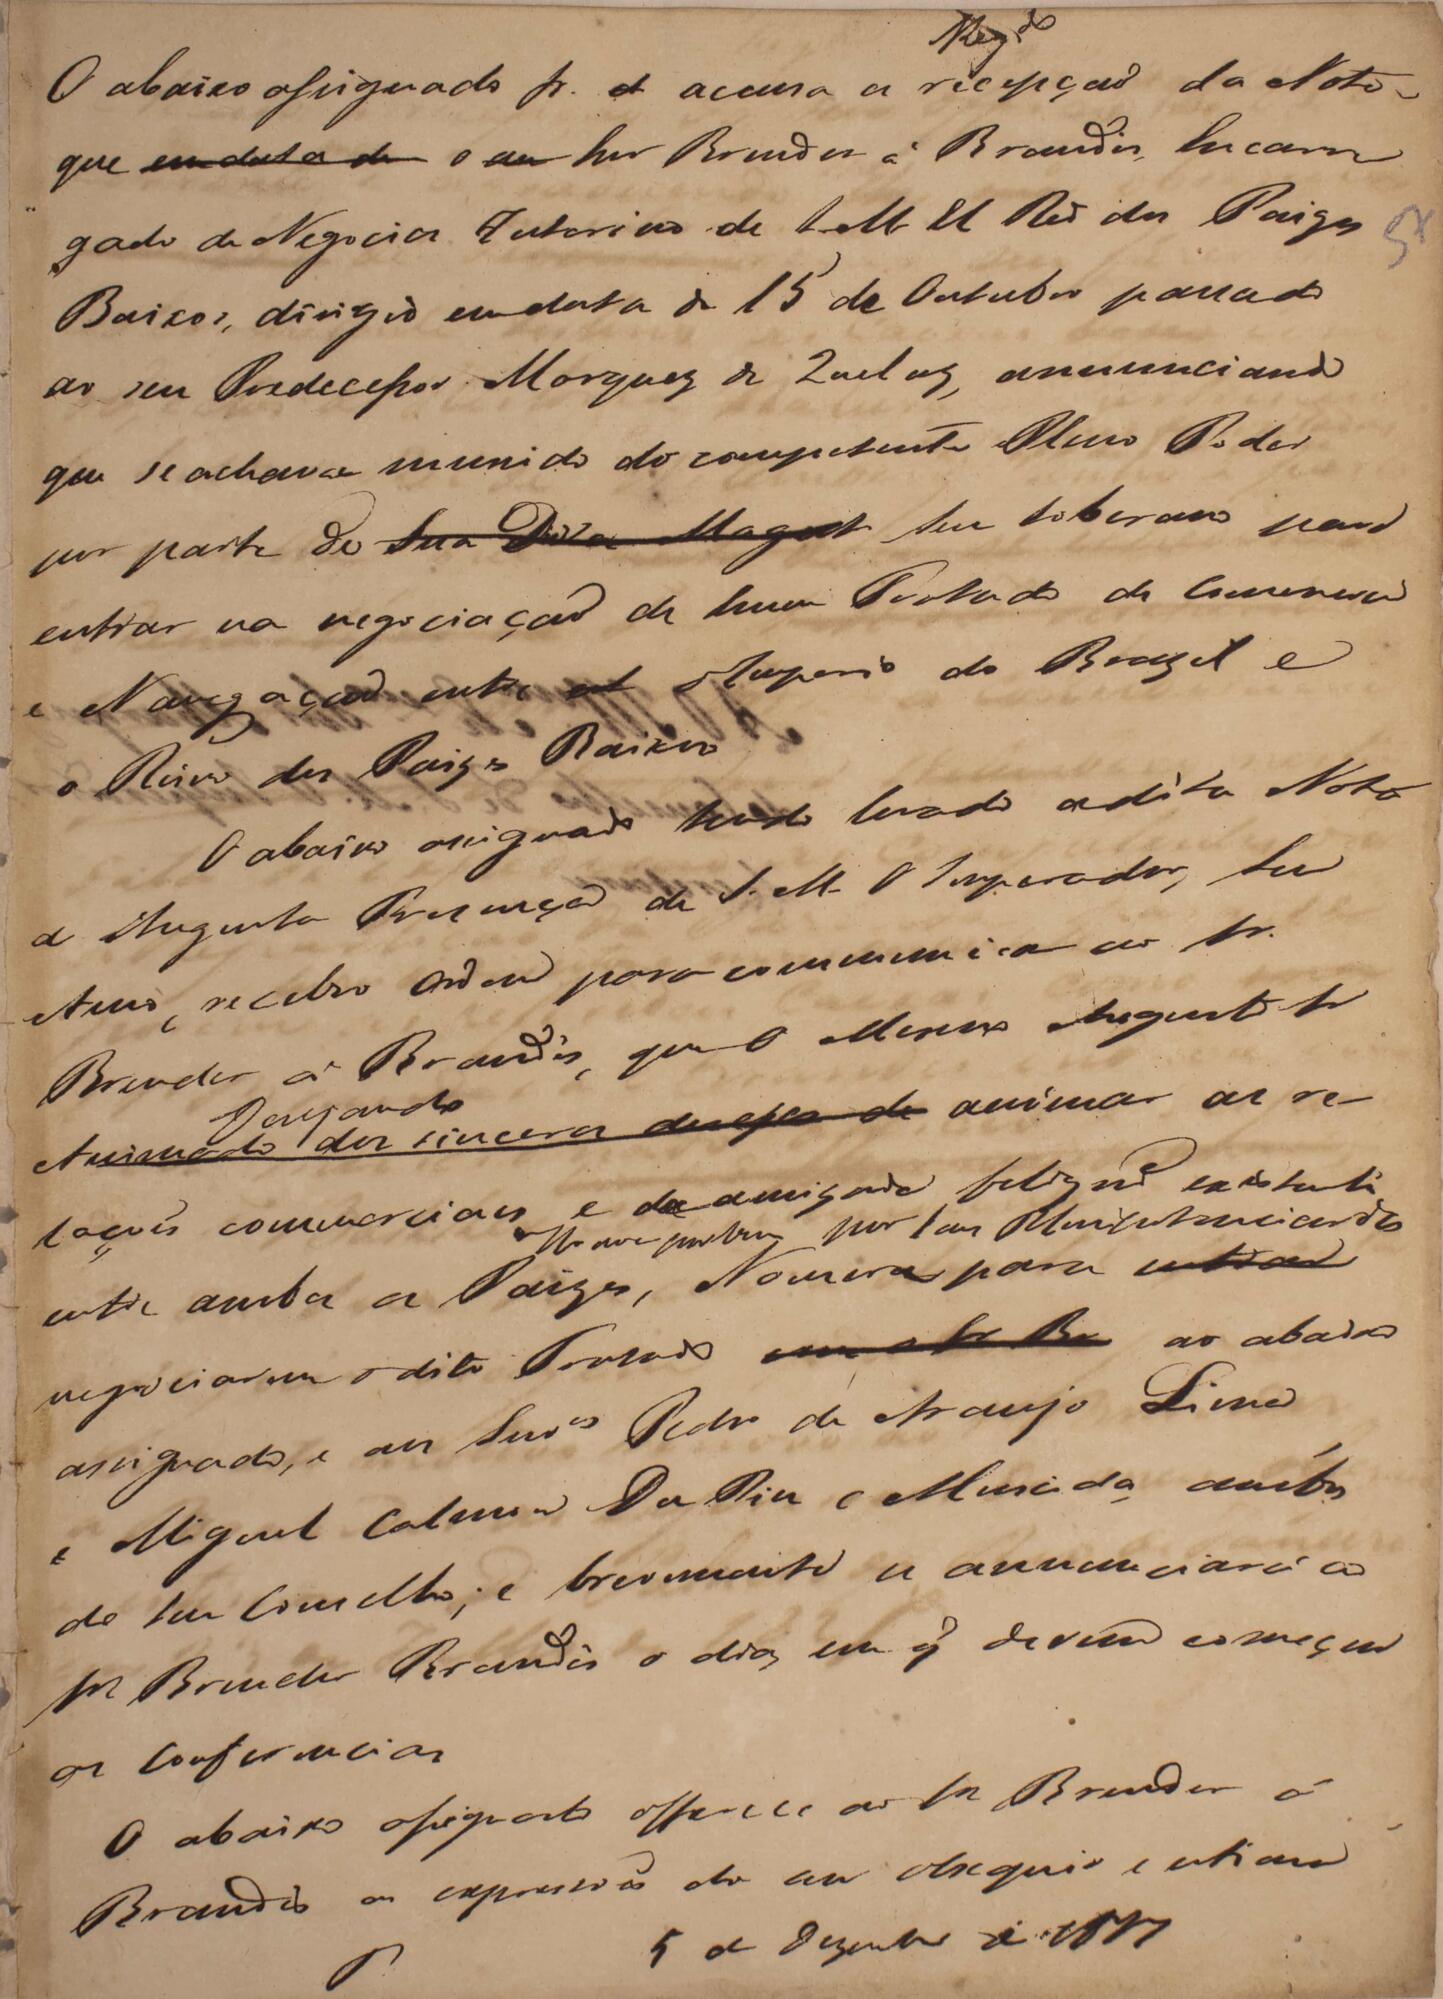 Reg.do
O abaixo assignado fr. et acusa a recepçaõ da Nota
que em data de o seu Snr Brender á Brandis, Encarre
gado de Negocios Interino de S. M. El Rei dos Paizes
Baixos, dirigio em data de 15 de Outubro passado
ao seu Predecessor Marquez de Queluz, annunciando
que se achava munido do competente Pleno Poder
por parte do Sua Dita Magest seu Soberano para
entrar na negociaçaõ de hum Tratado de Commercio
e Navegaçaõ entre o Imperio do Brazil e
o Reino dos Paizes Baixos
O abaixo assignado tendo levado a dita Nota
a Augusta Presença de S. M. O Imperador, Seu
Amo, recebeo ordem para communicar ao Sr.
Brender á Brandis, que O Mesmo Augusto Sr
Dezejando
Animado dos sinceros desejos de animar as re-
laçoẽs commerciaes e de amizade felizm.e existente
por seus Plenipotenciarios
entre ambos os Paizes, Nomeara para entrar
negociarem o dito Tratado com o Sr Br ao abaixo
assignado, e aos Snr.es Pedro de Araujo Lima
e Miguel Calmon Du Pin e Almeida, ambos
do Seu Conselho; e brevemente se annunciará ao
Sr Brender Brandis o dia, em q̃ devem começar
as Conferencias
O abaixo assignado offerece ao Sr Brender á
Brandis as expressoẽs do seu obsequio e estima
P 5 de Dezembro de 1827